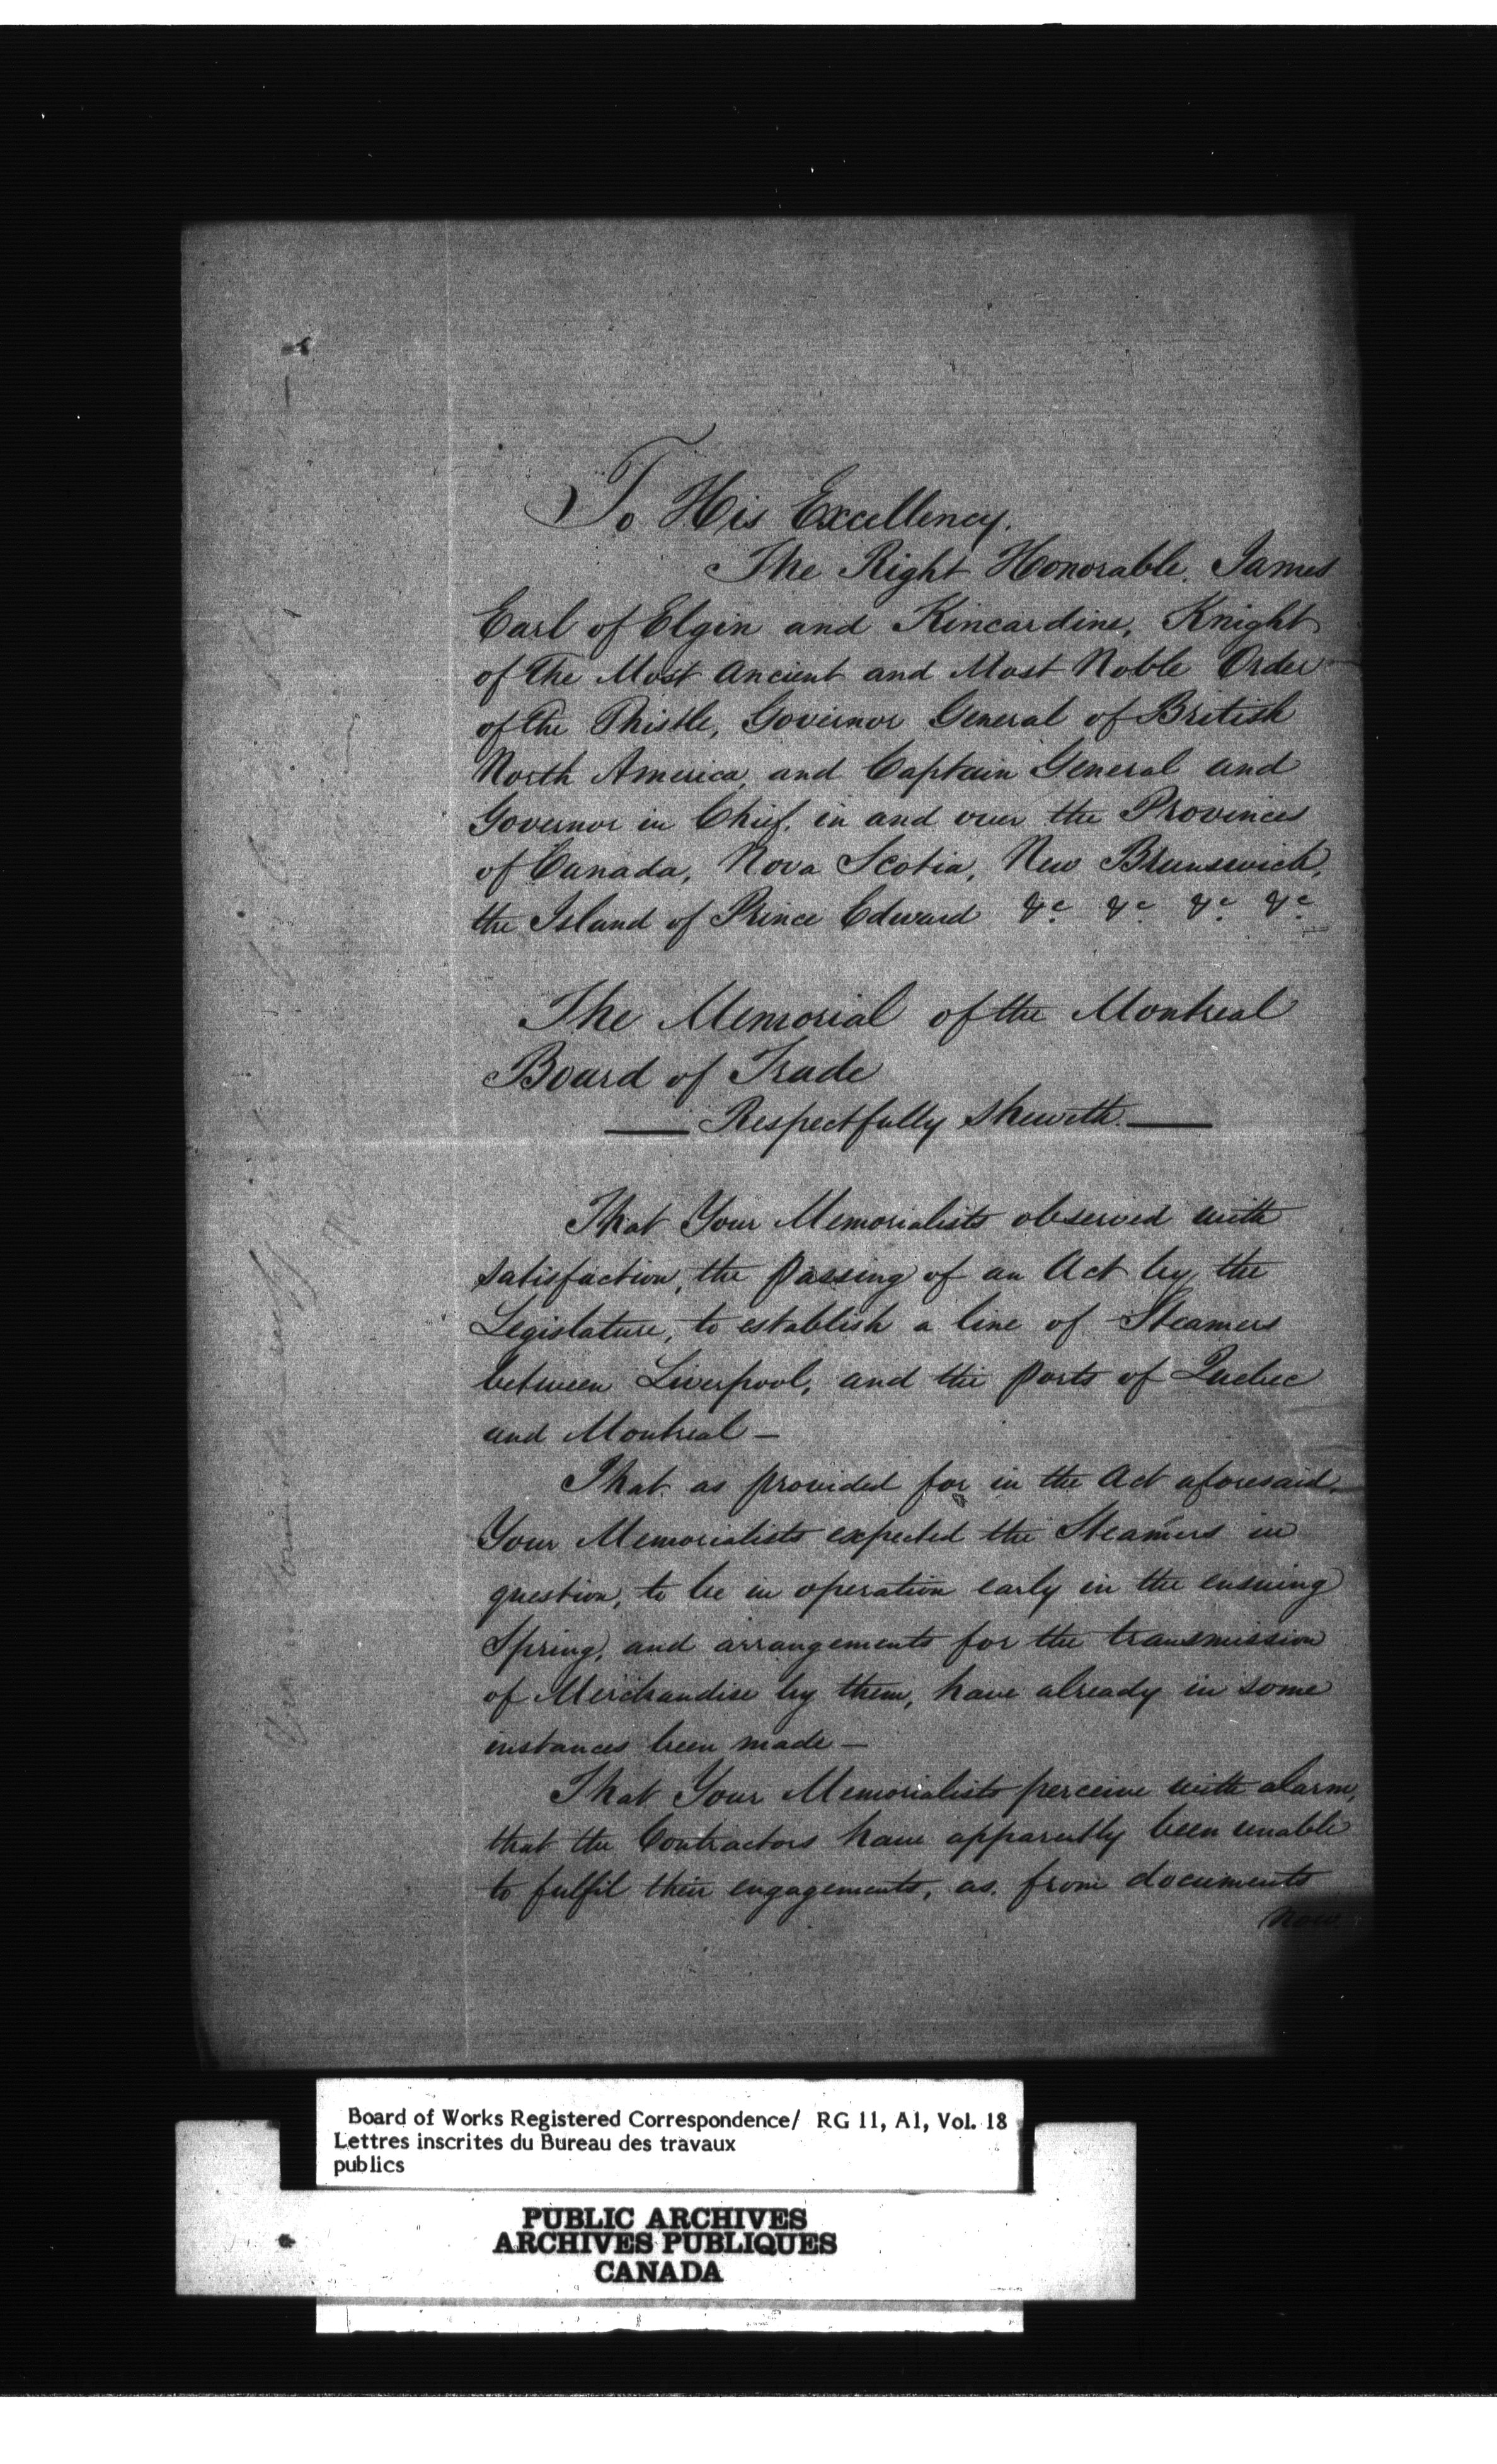 To His Excellency.
The Right Honorable. James
Earl of Elgin and Kincardine, Knight
of the Most Ancient and Most Noble Order
of the Thistle, Governor General of British
North America, and Captain General and
Governor in Chief. in and over the Provinces
of Canada, Nova Scotia, New Brunswick,
the Island of Prince Edward &c &c &c &c
The Memorial of the Montreal
Board of Trade
— Respectfully Sheweth. —
That Your Memorialists observed with
satisfaction, the passing of an Act by the
Legislature, to establish a line of Steamers
between Liverpool, and the ports of Quebec
and Montreal —
That as provided for in the Act aforesaid.
Your Memorialists expected the Steamers in
question, to be in operation early in the ensuing
Spring, and arrangements for the transmission
of Merchandise by them, have already in some
instances been made —
That Your Memorialists perceive with alarm,
that the Contractors have apparently been unable
to fulfil their engagements, as. from documents
now
Board of Works Registered Correspondence/ RG 11, A1, Vol. 18
Lettres inscrites du Bureau des travaux
publics
PUBLIC ARCHIVES
ARCHIVES PUBLIQUES
CANADA